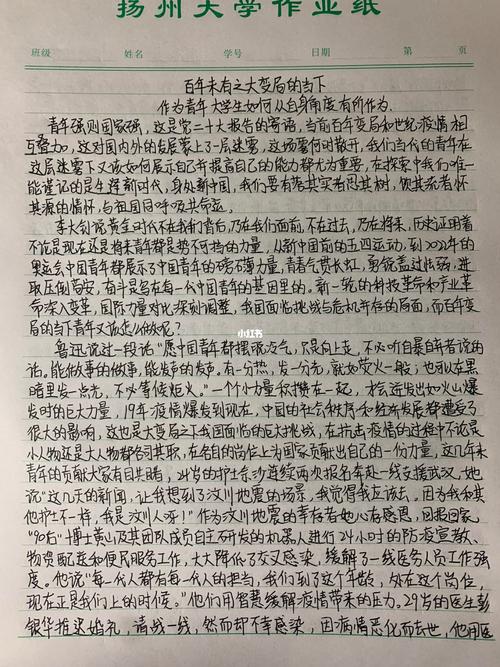 扬州大学作业纸
班级 姓名 学号 日期 第 页
百年未有之大变局的当下
作为青年大学生如何从自身角度有所作为.
青年强则国家强，这是党二十大报告的寄语，当前百年变局和世纪疫情相
互叠加，这对国内外的发展蒙上了一层迷雾，这场雾何时散开，我们当代的青年在
这层迷雾下又该如何展示自己并提高自己的能力都尤为重要，在探索中我们唯一
能谨记的是生逢新时代，身处新中国，我们要有落其实者思其树，饮其流者怀
其源的情怀，与祖国同呼吸共命运。
李大钊说黄金时代不在我们背后，乃在我们面前，不在过去，乃在将来，历史证明着
不论是现在还是将来青年都是势不可挡的力量，从新中国前的五四运动，到2022年的
奥运会中国青年都展示了中国青年的磅礴力量，青春气贯长虹，勇锐盖过怯弱，进
取压倒苟安，奋斗是写在每一代中国青年的基因里的。新一轮的科技革命和产业革
命深入变革，国际力量对比深刻调整，我国面临挑战与危机并存的局面，而百年变
局的当下青年又该怎么做呢？
鲁迅说过一段话“愿中国青年都摆脱冷气，只是向上走，不必听自暴自弃者说的
话。能做事的做事，能发声的发声。有一分热，发一分光，就如萤火一般；也可以在黑
暗里发一点光，不必等候炬火。”一个个小力量积攒在一起，才会迸发出如火山爆
发时的巨大力量，19年疫情爆发到现在，中国的社会秩序和经济发展都遭受了
很大的影响，这也是大变局之下我国面临的巨大挑战，在抗击疫情的过程中不论是
小人物还是大人物都各司其职，在各自的岗位上为国家贡献出自己的一份力量，这几年来
青年的贡献大家有目共睹，24岁的护士佘沙连续两次报名奔赴一线支援武汉，她
说“这几天的新闻，让我想到了汶川地震的场景，我觉得我应该去。因为我和其
他护士不一样，我是汶川人呀！”作为汶川地震的幸存者她心有感恩，回报国家。
“90后”博士黄山及其团队成员自主研发的机器人进行24小时的防疫宣教、
物资配送和便民服务工作，大大降低了交叉感染，缓解了一线医务人员工作强
度。他说“每一代人都有每一代人的担当，我们到了这个年龄，处在这个岗位，
现在正是我们上的时候。”他们用智慧缓解疫情带来的压力。29岁的医生彭
银华推迟婚礼，请战一线，然而却不幸感染，因病情恶化而去世，他用医
小红书